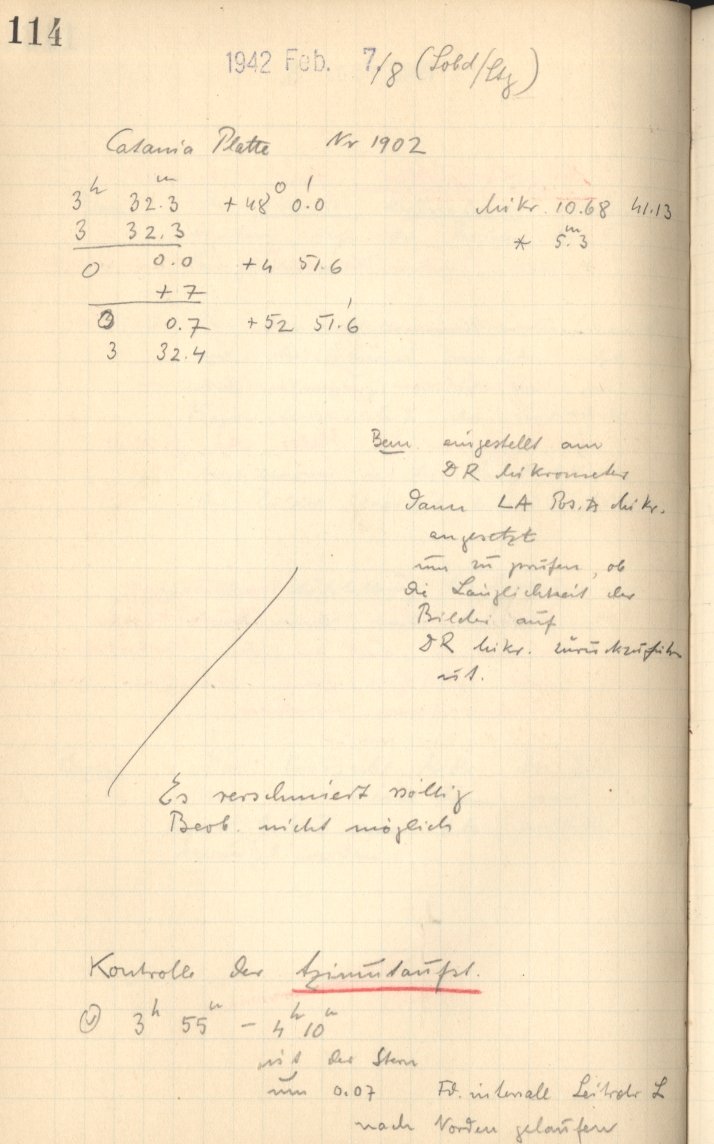 114
1942 Feb. 7/8 (Lobd/Stg)
Catania Platte Nr 1902
3h 32.m3 +48° 0.'0 Mikr. 10.68 41.13
3 32.3 * 5.m3
0 0.0 +4 51.6
+7
0.7 +52 51.'6
3 32.4
Bem. eingestellt am
DR Mikrometer
dann LA Pos. Mikr.
angesetzt
um zu prüfen, ob
die Länglichkeit der
Bilder auf
DR Mikr. zurückzuführen
ist.
Es verschmiert völlig
Beob. nicht möglich
Kontrolle der Azimutaufst.
3h 55m – 4h 10m
ist der Stern
um 0.07 Fd. intervall Leitrohr L
nach Norden gelaufen